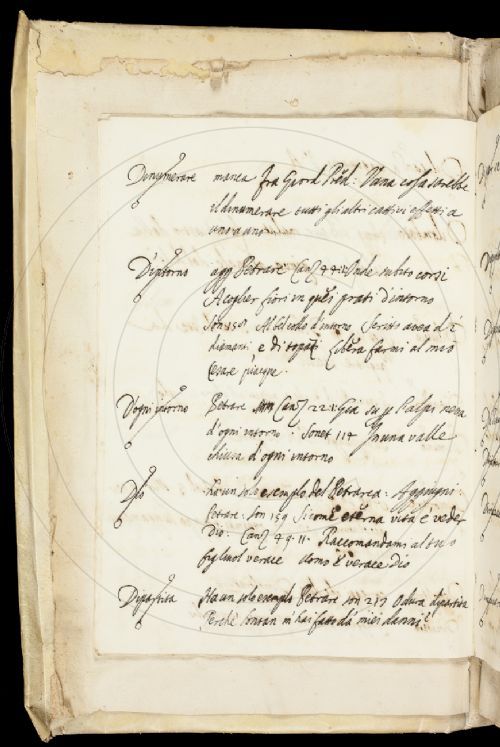 Dinumerare manca fra Giord Pred: Vana cosa sarebbe
il dinumerare tutti gli altri cattivi effetti a
uno a uno
D'intorno agg Petrarc Canz Onde subito corsi
A coglier fiori in quei prati d'intorno
Son 158. Al bel collo d'intorno Scritto avea di
diamanti e di topati Libera farmi al mio
Cesare piacque.
D'ogni intorno Petrar Canz 22 Già su per l'alpi neva
d'ogni intorno. Sonet 114 In una valle
chiusa d'ogni intorno
Dio ha un solo esempio del Petrarca. Aggiugni
Petrar. Son 159 Sicome eterna vita è veder
Dio. Canz 49. 11. Raccomandami al tuo
figliuol verace uomo e verace Dio
Dipartita Ha un solo esempio Petrarc son O dura dipartita
Perche lontan m'hai fatto da miei danni